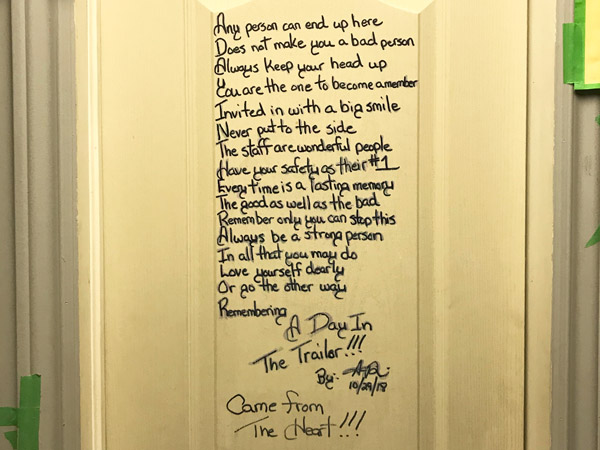 Any person can end up here
Does not make you a bad person
Always keep your head up
You are the one to become a member
Invited in with a big smile
Never put to the side
The staff are wonderful people
Have your safety as their #1
Every time is a lasting memory
The good as well as the bad
Remember only you can stop this
Always be a strong person
In all that you may do
Love yourself dearly
Or go the other way
Remembering
A Day In
The Trailor!!!
By:
10/29/18
Came from
The Heart!!!